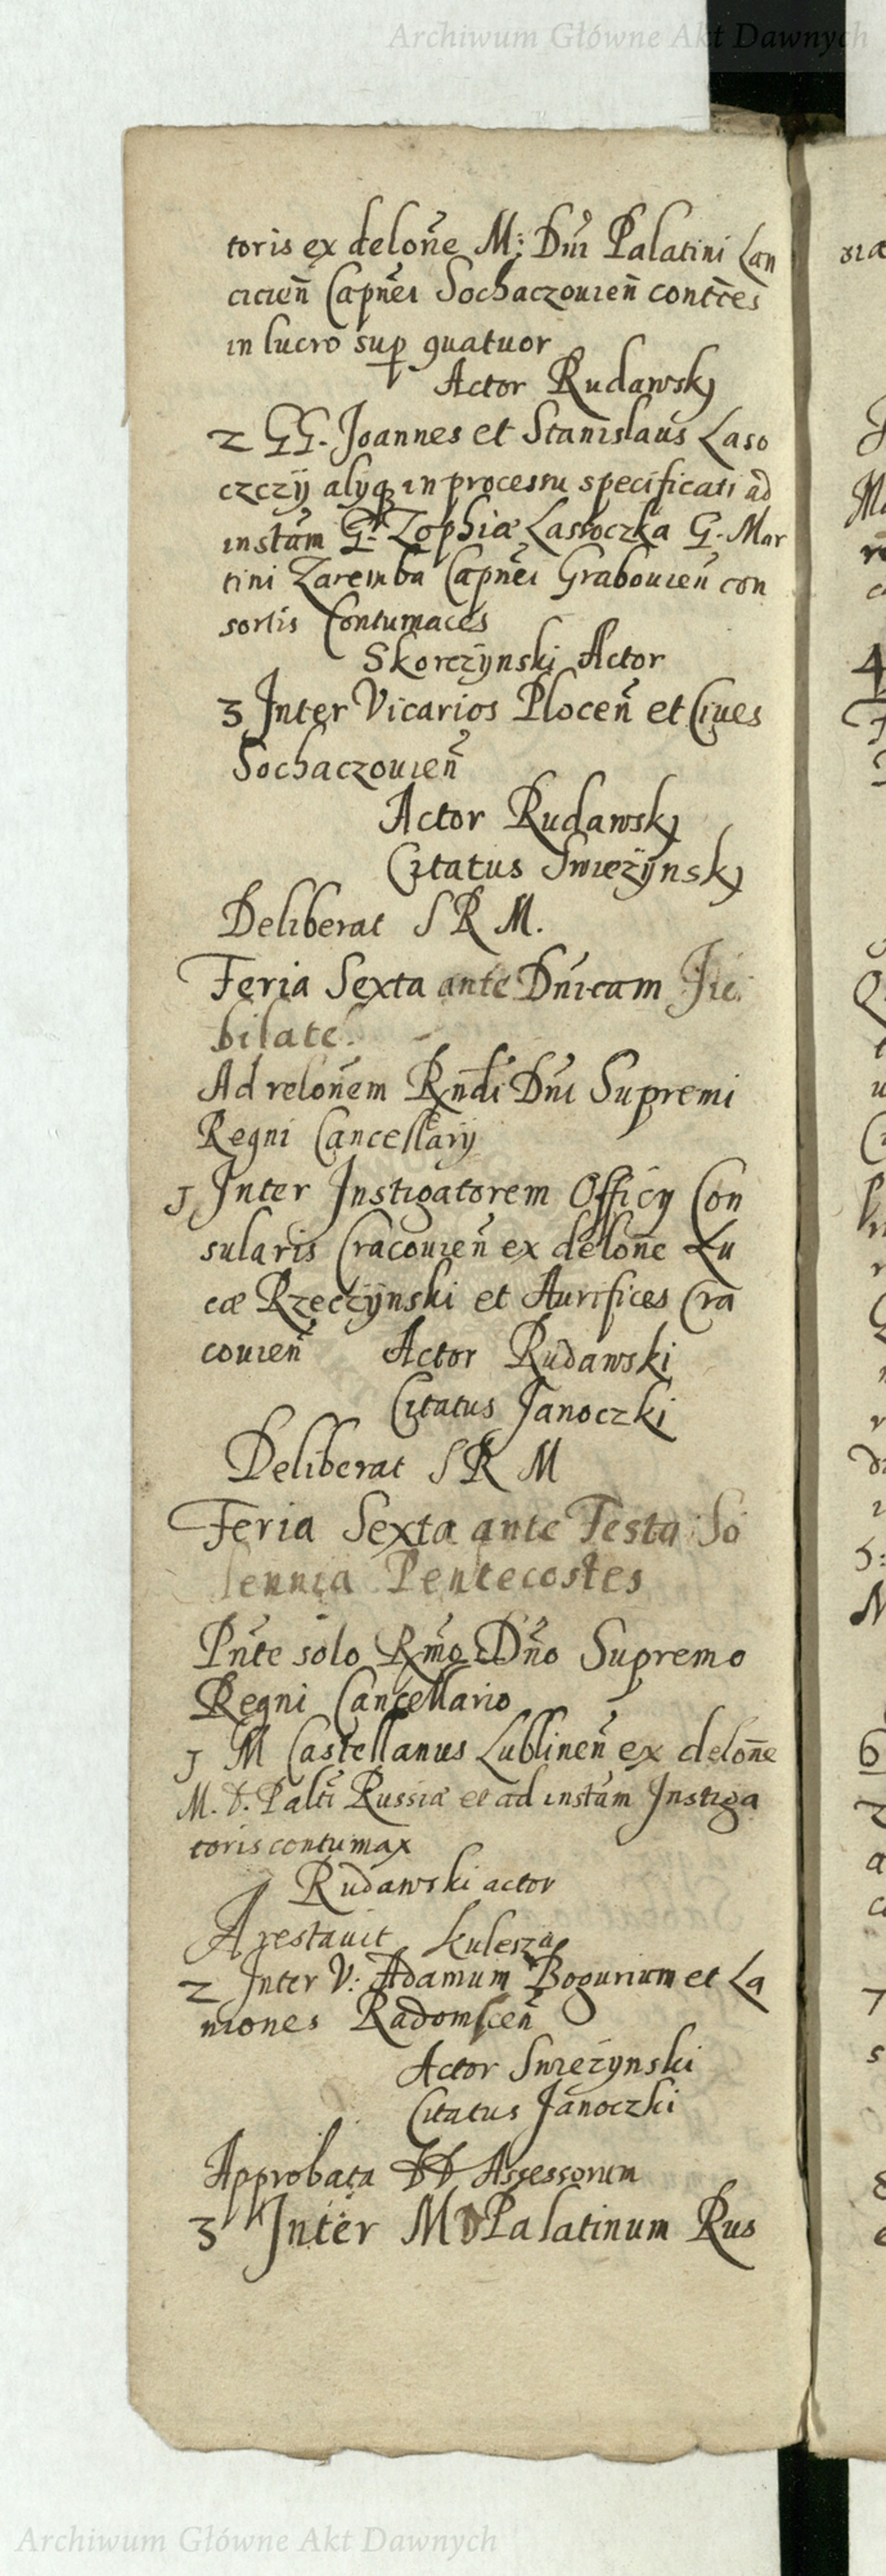 Archiwum Główne Akt Dawnych
toris ex deloñe M: Dnı Palatini Lan
cicieñ Capñei Sochaczouieñ contces
in lucro sup quatuor
Actor Rudawsky
2 GG. Joannes et Stanislaus Laso
czczÿ alyq in processu specificati ad
instãm G. Zophiæ Lassoczka G. Mar
tini Zaremba Capñei Grabouieñ con
sortis Contumaces
Skorczÿnski Actor
3 Inter Vicarios Ploceñ et Ciues
Sochaczouieñ
Actor Rudawsky
Citatus Swiezÿnsky
Deliberat S R M.
Feria Sexta ante Dnicam Iu
bilate.
Ad reloñem Rndi Dni Supremi
Regni Cancellarÿ
J Inter Instigatorem Officy Con
sularis Cracouieñ ex deloñe Lu
cæ Rzeczÿnski et Aurifices Cra
couieñ Actor Rudawski
Citatus Janoczki
Deliberat S R M
Feria Sexta ante Festa So
lennia Pentecostes
Pñte solo Rmo Dño Supremo
Regni Cancellario
J M Castellanus Lublineñ ex deloñe
M. D. Palti Russiæ et ad instãm Instiga
toris contumax
Rudawski actor
Arestauit Kulesza
2 Inter V: Adamum Bogurium et La
niones Radomsceñ
Actor Swiezynski
Citatus Janoczki
Approbata DD Assessorum
3 Inter M D Palatinum Rus
Archiwum Główne Akt Dawnych